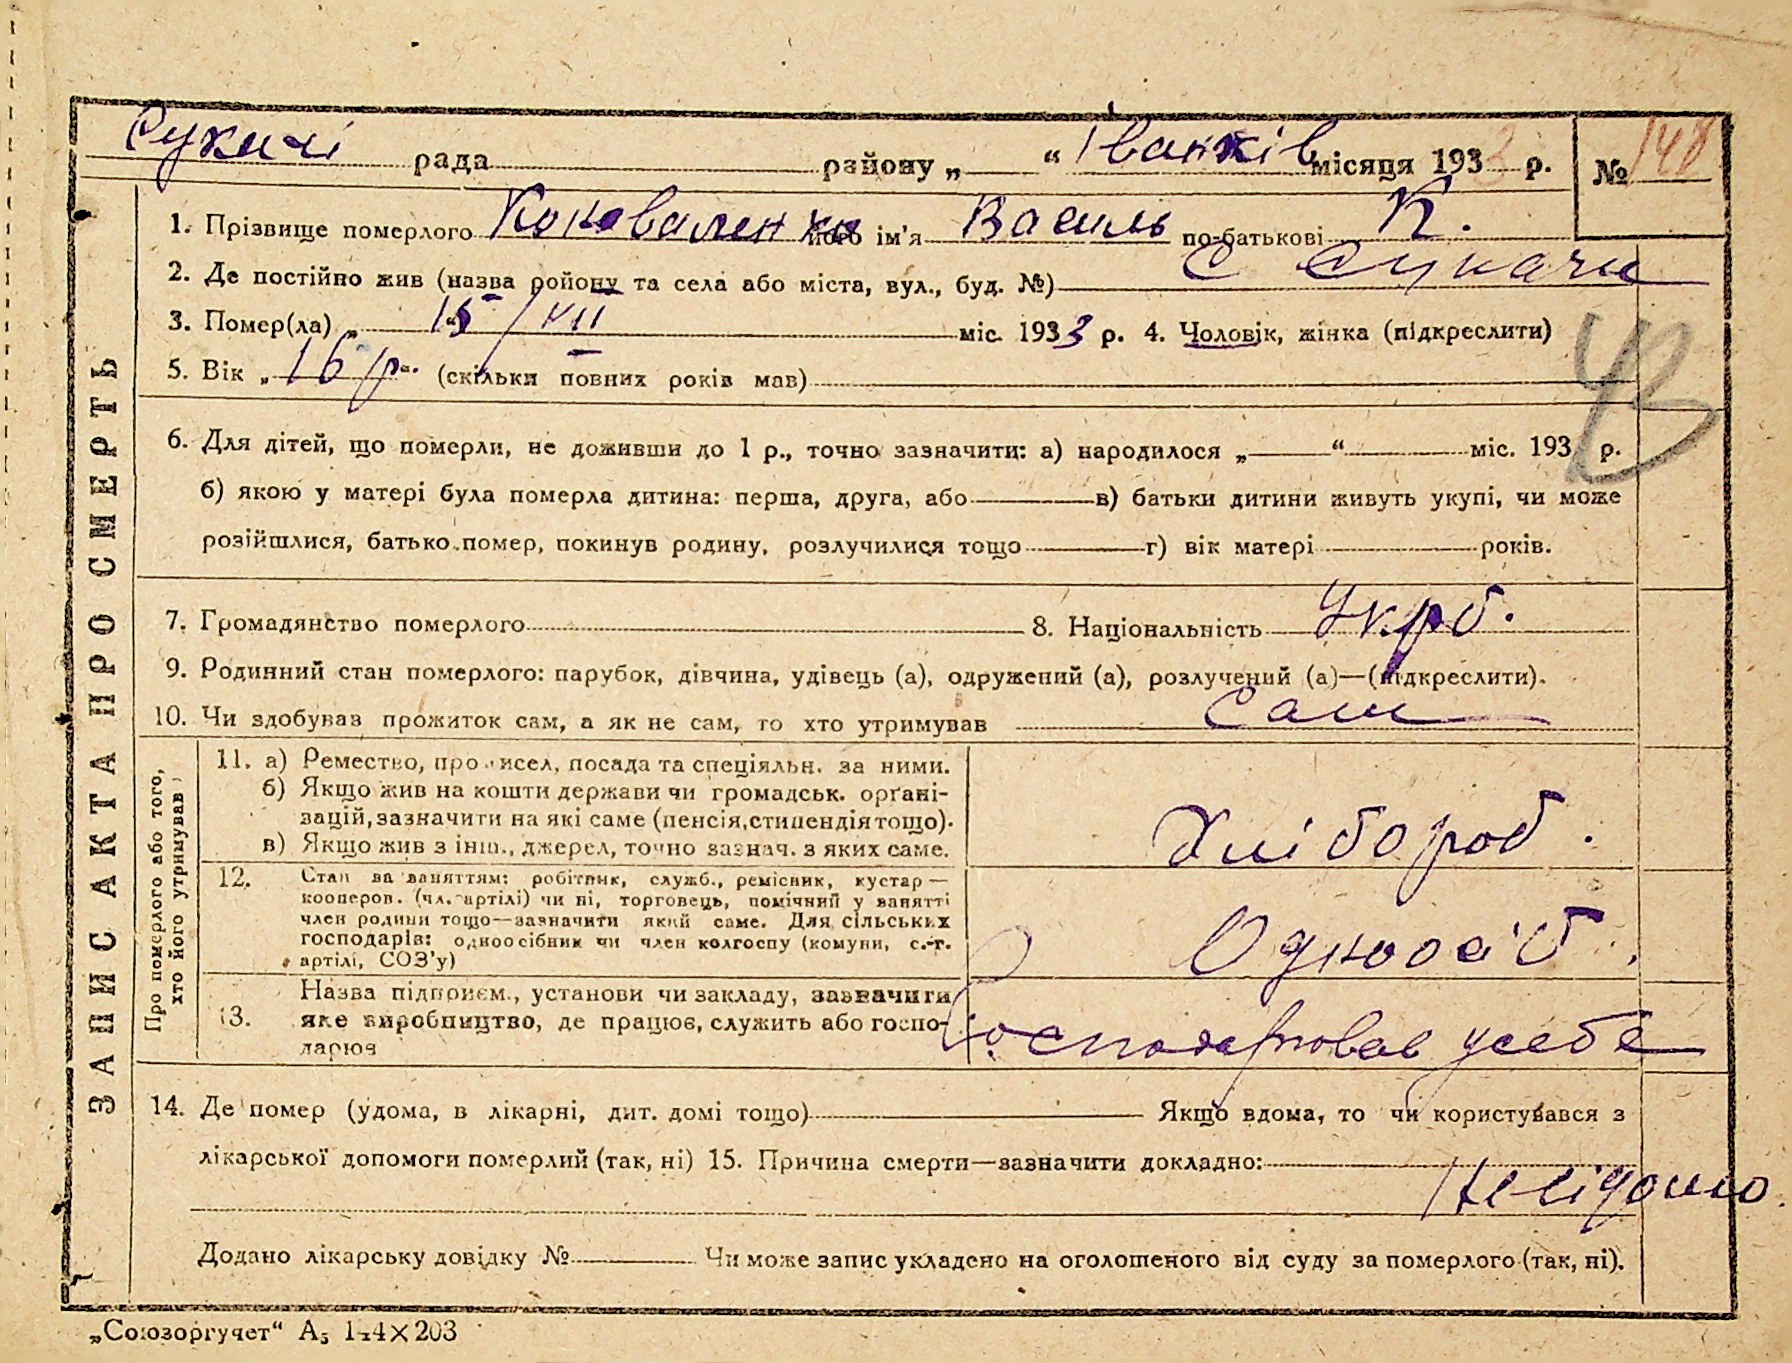 Сукачі рада району „ “ Іванків місяця 1933 р. № 148
1. Прізвище померлого Коноваленко його ім'я Василь по-батькові К.
2. Де постійно жив (назва ройону та села або міста, вул., буд. №) с Сукачи
3. Помер(ла) „ 15/VII міс. 1933 р. 4. Чоловік, жінка (підкреслити)
5. Вік „ 16 р. (скільки повних років мав)
6. Для дітей, що померли, не доживши до 1 р., точно зазначити: а) народилося „ “ міс. 193 р.
б) якою у матері була померла дитина: перша, друга, або в) батьки дитини живуть укупі, чи може
розійшлися, батько помер, покинув родину, розлучилися тощо г) вік матері років.
7. Громадянство померлого 8. Національність Укр.
9. Родинний стан померлого: парубок, дівчина, удівець (а), одружений (а), розлучений (а)—(підкреслити).
10. Чи здобував прожиток сам, а як не сам, то хто утримував сам
ЗАПИС АКТА ПРО СМЕРТЬ
Про померлого або того,
хто його утримував
11. а) Ремество, промисел, посада та спеціяльн. за ними.
б) Якщо жив на кошти держави чи громадськ. органі-
зацій, зазначити на які саме (пенсія, стипендія тощо).
в) Якщо жив з інш., джерел, точно зазнач. з яких саме.
Хлібороб.
12. Стан за заняттям: робітник, служб., ремісник, кустар—
кооперов. (чл. артілі) чи ні, торговець, помічний у занятті
член родини тощо—зазначити який саме. Для сільських
господарів: одноосібник чи член колгоспу (комуни, с.-г.
артілі, СОЗ'у)
Одноосіб.
Назва підприєм., установи чи закладу, зазначити
13. яке виробництво, де працює, служить або госпо-
дарює
Господарював у себе
14. Де помер (удома, в лікарні, дит. домі тощо) Якщо вдома, то чи користувався з
лікарської допомоги померлий (так, ні) 15. Причина смерти—зазначити докладно:
Невідомо.
Додано лікарську довідку № Чи може запис укладено на оголошеного від суду за померлого (так, ні).
„Союзоргучет“ А₅ 144×203